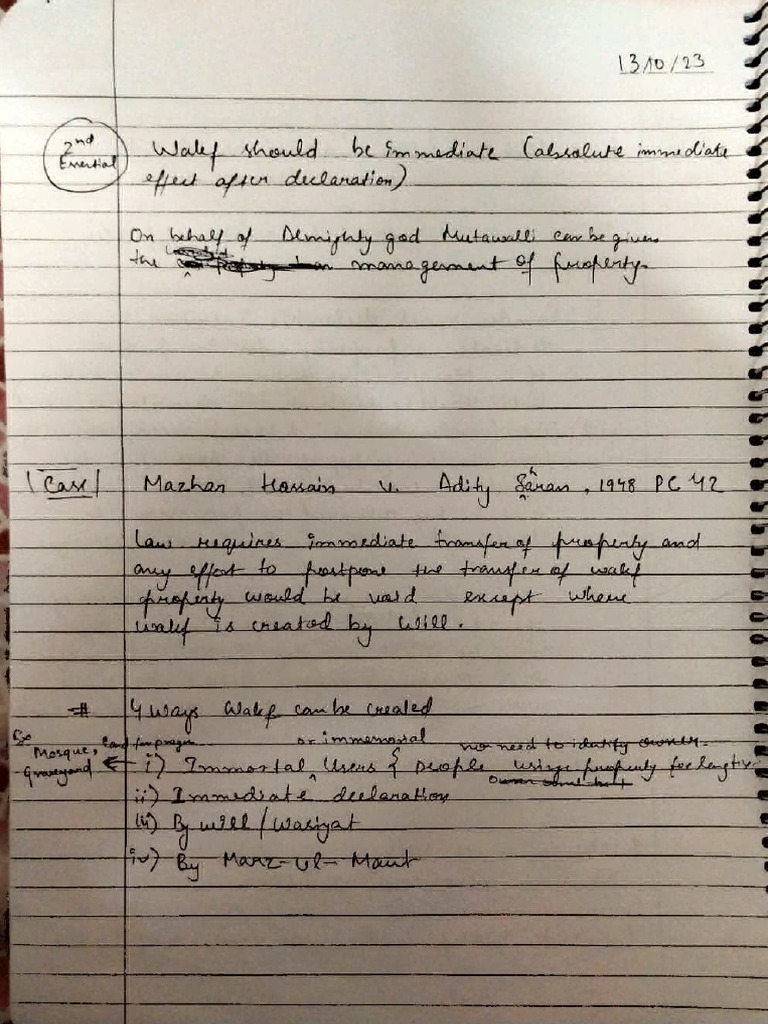 13/10/23
2nd Essential
Wakf should be immediate (absolute immediate
effect after declaration)
On behalf of Almighty god Mutawalli can be given
the management of property.
Case
Mazhar Hossain v. Adity Saran, 1948 PC 42
Law requires immediate transfer of property and
any effort to postpone the transfer of wakf
property would be void except where
wakf is created by Will.
# 4 Ways Wakf can be created
or immemorial no need to identify owner.
Ex Mosque, land for prayer
Graveyard ← i) Immortal Users { people using property for long time
ii) Immediate declaration
iii) By will / Wasiyat
iv) By Marz-ul-Maut